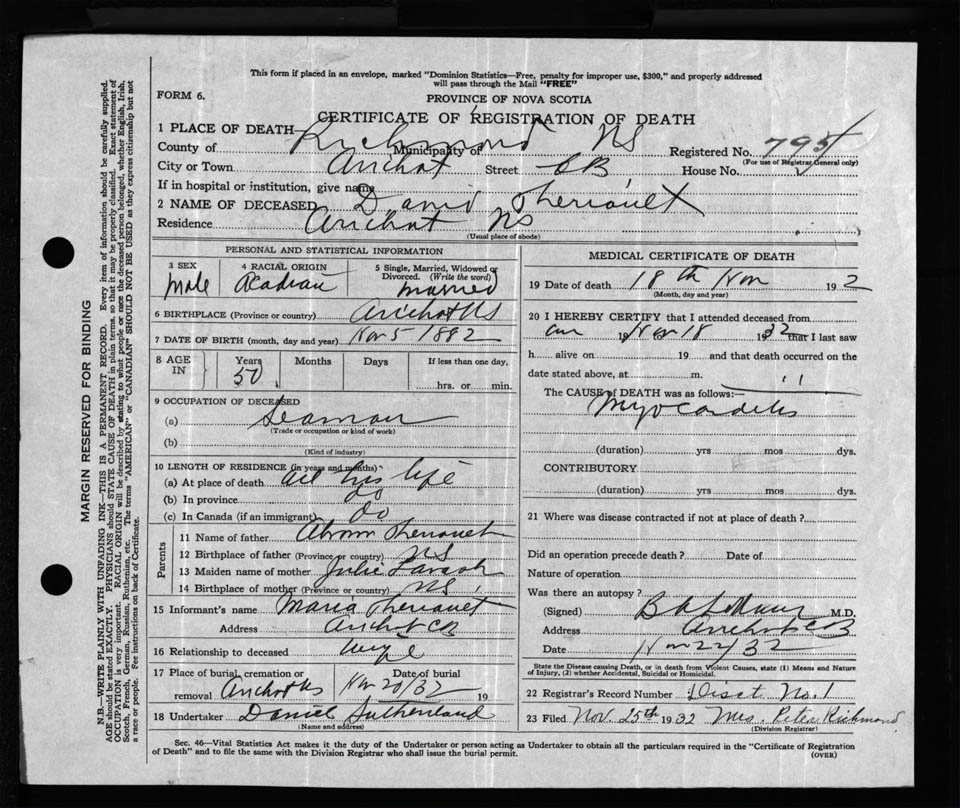 This form if placed in an envelope, marked "Dominion Statistics—Free, penalty for improper use, $300," and properly addressed
will pass through the Mail "FREE"
FORM 6.
PROVINCE OF NOVA SCOTIA
CERTIFICATE OF REGISTRATION OF DEATH
1 PLACE OF DEATH
County of Richmond Municipality of NS Registered No. 795
(For use of Registrar General only)
City or Town Arichat Street CB House No.
If in hospital or institution, give name
2 NAME OF DECEASED David Theriault
Residence Arichat NS
(Usual place of abode)
PERSONAL AND STATISTICAL INFORMATION
3 SEX Male
4 RACIAL ORIGIN Acadian
5 Single, Married, Widowed or Divorced. (Write the word) Married
6 BIRTHPLACE (Province or country) Arichat NS
7 DATE OF BIRTH (month, day and year) Nov 5 1882
8 AGE IN Years 50 Months Days If less than one day, hrs. or min.
9 OCCUPATION OF DECEASED
(a) Seaman
(Trade or occupation or kind of work)
(b)
(Kind of industry)
10 LENGTH OF RESIDENCE (in years and months)
(a) At place of death all his life
(b) In province do
(c) In Canada (if an immigrant) do
Parents
11 Name of father Abram Theriault
12 Birthplace of father (Province or country) NS
13 Maiden name of mother Julie
14 Birthplace of mother (Province or country) NS
15 Informant's name Maria Theriault
Address Arichat CB
16 Relationship to deceased wife
17 Place of burial, cremation or removal Arichat NS Date of burial Nov 20/32 19
18 Undertaker Daniel Sutherland
(Name and address)
MEDICAL CERTIFICATE OF DEATH
19 Date of death 18th Nov 192
(Month, day and year)
20 I HEREBY CERTIFY that I attended deceased from
19 Nov 18 1932 that I last saw
h alive on 19 and that death occurred on the
date stated above, at m.
The CAUSE of DEATH was as follows:—
Myocarditis
(duration) yrs mos dys.
CONTRIBUTORY
(duration) yrs mos dys.
21 Where was disease contracted if not at place of death?
Did an operation precede death? Date of
Nature of operation
Was there an autopsy?
(Signed) B A LeBlanc M.D.
Address Arichat CB
Date Nov 22/32
State the Disease causing Death, or in death from Violent Causes, state (1) Means and Nature
of Injury, (2) whether Accidental, Suicidal or Homicidal.
22 Registrar's Record Number Dist No. 1
23 Filed Nov. 25th 1932 Mrs. Peter Richmond
(Division Registrar)
Sec. 46—Vital Statistics Act makes it the duty of the Undertaker or person acting as Undertaker to obtain all the particulars required in the "Certificate of Registration
of Death" and to file the same with the Division Registrar who shall issue the burial permit.
(OVER)
MARGIN RESERVED FOR BINDING
N.B.—WRITE PLAINLY WITH UNFADING INK—THIS IS A PERMANENT RECORD. Every item of information should be carefully supplied.
AGE should be stated EXACTLY. PHYSICIANS should STATE CAUSE OF DEATH in plain terms, so that it may be properly classified. Exact statement of
OCCUPATION is very important. RACIAL ORIGIN will be described by stating to what people or race the deceased person belonged, whether English, Irish,
Scotch, French, German, Russian, Ruthenian, etc. The terms "AMERICAN" or "CANADIAN" SHOULD NOT BE USED as they express citizenship but not
a race or people. Fee instructions on back of Certificate.